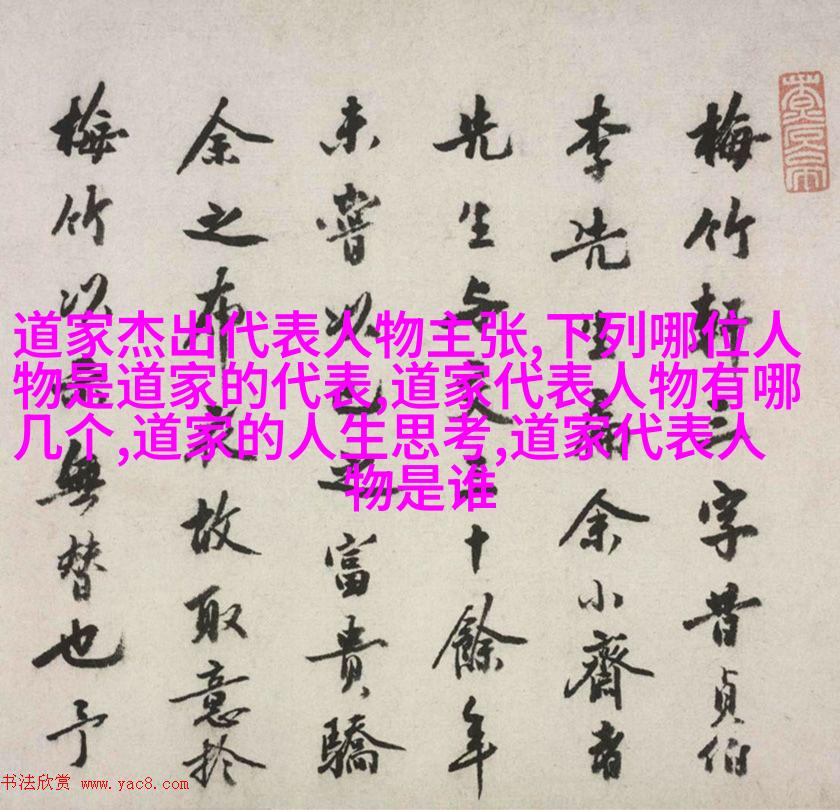 道家杰出代表人物主张,下列哪位人
物是道家的代表,道家代表人物有哪
几个,道家的人生思考,道家代表人
物是谁
梅竹軒三字昔貞伯
李先生余小齋者
先生与交十餘年
未嘗以富貴驕
余之布衣故取意於
梅竹以無替也予
书法欣赏 www.yac8.com